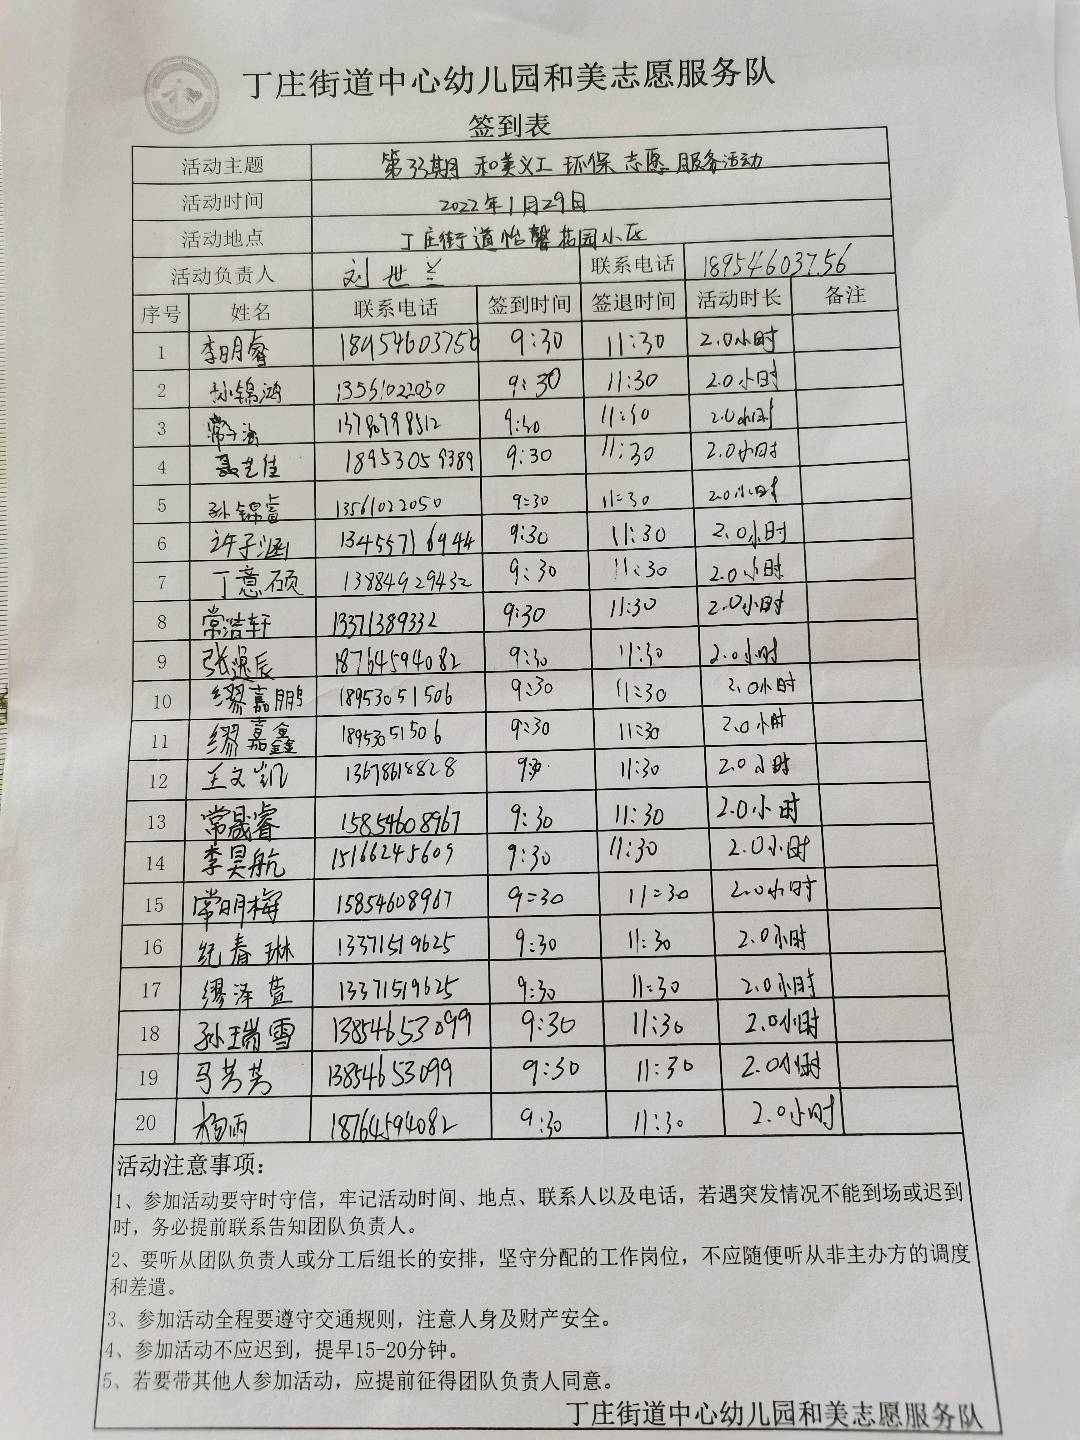 丁庄街道中心幼儿园和美志愿服务队
签到表
活动主题 第33期 和美义工 环保 志愿 服务活动
活动时间 2022年1月29日
活动地点 丁庄街道怡馨花园小区
活动负责人 刘世兰 联系电话 18954603756
序号 姓名 联系电话 签到时间 签退时间 活动时长 备注
1 李明睿 18954603756 9:30 11:30 2.0小时
2 孙锦鸿 13561022050 9:30 11:30 2.0小时
3 常子涵 13780798512 9:30 11:30 2.0小时
4 聂艺佳 18953059389 9:30 11:30 2.0小时
5 孙锦萱 13561022050 9:30 11:30 2.0小时
6 许子涵 13455716944 9:30 11:30 2.0小时
7 丁意硕 13884929432 9:30 11:30 2.0小时
8 常浩轩 13371389332 9:30 11:30 2.0小时
9 张逸辰 18764594082 9:30 11:30 2.0小时
10 缪嘉鹏 18953051506 9:30 11:30 2.0小时
11 缪嘉鑫 18953051506 9:30 11:30 2.0小时
12 王文凯 13678618828 9:30 11:30 2.0小时
13 常晟睿 15854608967 9:30 11:30 2.0小时
14 李昊航 15166245609 9:30 11:30 2.0小时
15 常明梅 15854608967 9:30 11:30 2.0小时
16 纪春琳 13371519625 9:30 11:30 2.0小时
17 缪泽萱 13371519625 9:30 11:30 2.0小时
18 孙瑞雪 13854653099 9:30 11:30 2.0小时
19 马芳芳 13854653099 9:30 11:30 2.0小时
20 杨丙 18764594082 9:30 11:30 2.0小时
活动注意事项：
1、参加活动要守时守信，牢记活动时间、地点、联系人以及电话，若遇突发情况不能到场或迟到
时，务必提前联系告知团队负责人。
2、要听从团队负责人或分工后组长的安排，坚守分配的工作岗位，不应随便听从非主办方的调度
和差遣。
3、参加活动全程要遵守交通规则，注意人身及财产安全。
4、参加活动不应迟到，提早15-20分钟。
5、若要带其他人参加活动，应提前征得团队负责人同意。
丁庄街道中心幼儿园和美志愿服务队